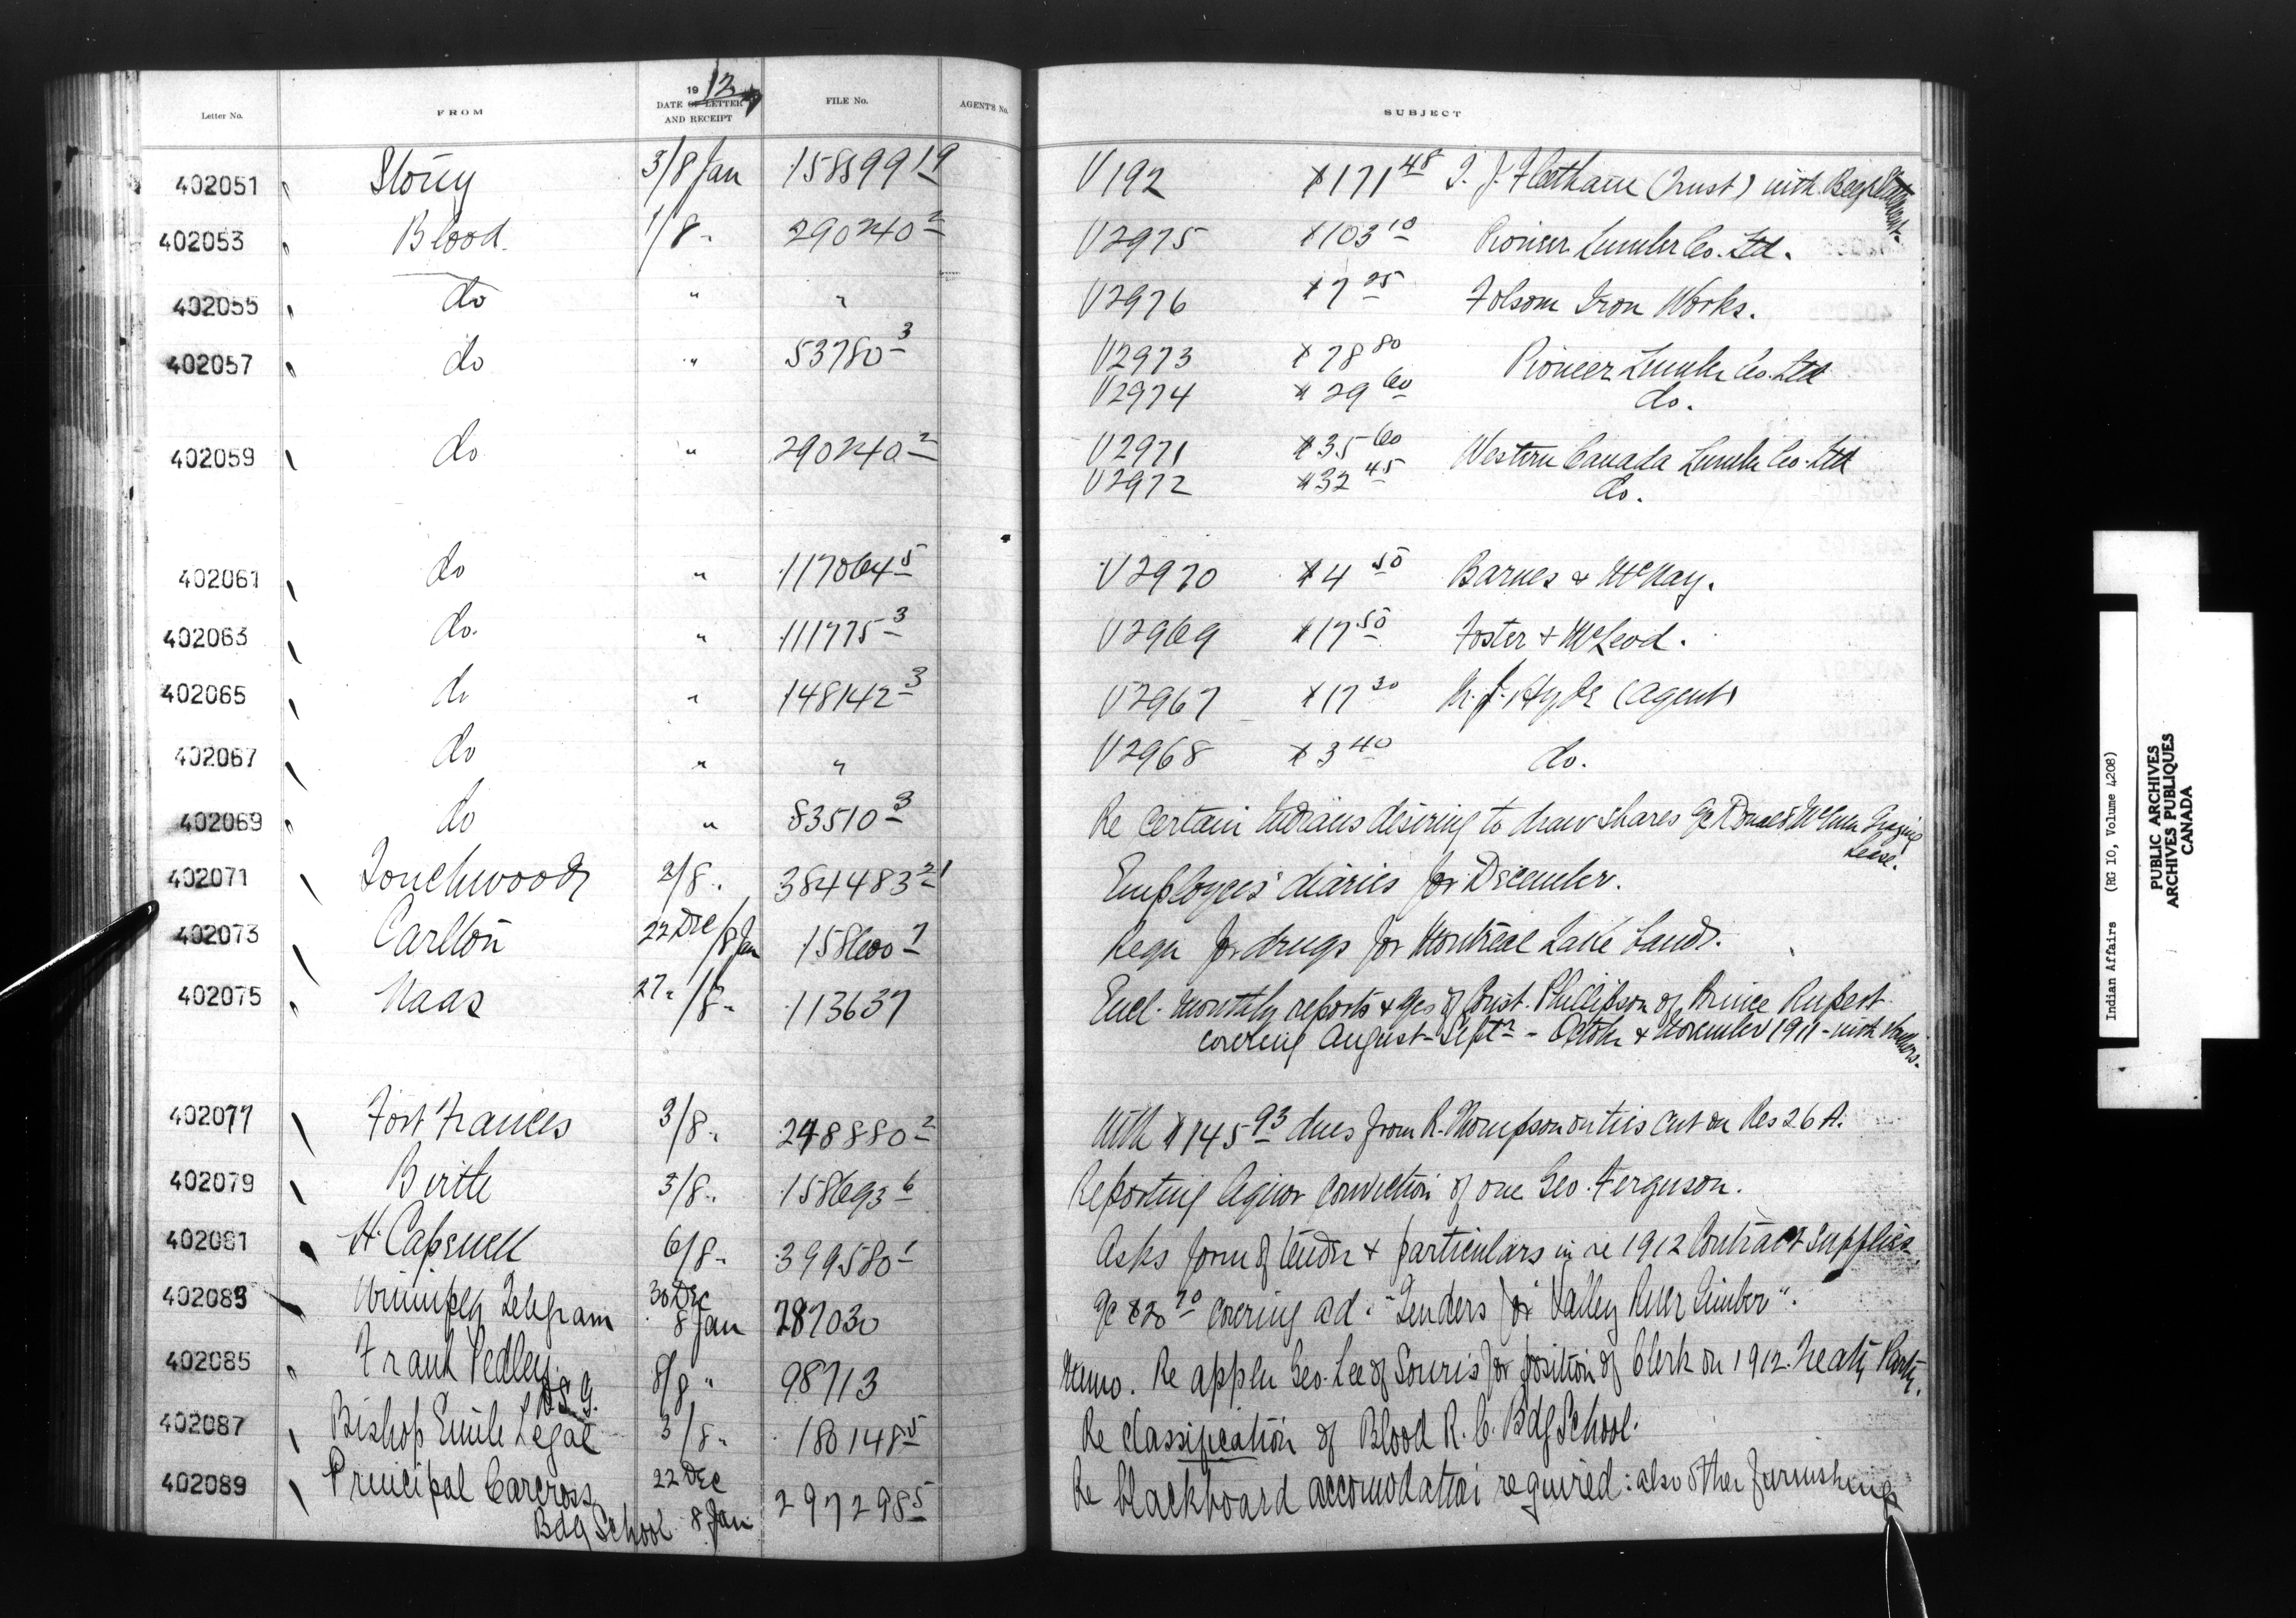 Letter No. FROM 1912 DATE OF LETTER AND RECEIPT FILE No. AGENT'S No. SUBJECT
402051 Stony 3/8 Jan 158599 19 V192 $171 48 (Trust) with
402053 Blood. 1/8 " 290240 2 V2975 $103 10 Pioneer Lumber Co. Ltd.
402055 do " " V2976 $7 25 Folsom Iron Works.
402057 do " 53780 3 V2973 $78 80 Pioneer Lumber Co. Ltd
V2974 $29 60 do.
402059 do " 290240 2 V2971 $35 60 Western Canada Lumber Co. Ltd
V2972 $32 45 do.
402061 do " 117064 5 V2970 $4 50 Barnes & McNay.
402063 do. " 111775 3 V2969 $17 50 Foster & McLeod.
402065 do " 148142 3 V2967 $17 30 Hyde (Agent)
402067 do " " V2968 $3 40 do.
402069 do " 83510 3 Re certain Indians desiring to draw shares Grazing
Lease.
402071 Touchwood 2/8 " 384483 21 Employees' diaries for December.
402073 Carlton 22 Dec/8 Jan 158600 7 Requ for drugs for Montreal Lake band.
402075 Naas 27 " /8 " 113637 Encl. monthly reports & a/cs of Const. Phillipson of Prince Rupert
covering August - Septr - October & November 1911 - with vouchers.
402077 Fort Frances 3/8 " 248880 2 With $145 93 dues from R. Thompson on ties cut on Res 26 A.
402079 Birtle 3/8 " 158693 6 Reporting liquor conviction of one Geo. Ferguson.
402081 H. Capewell 6/8 " 399580 1 Asks form of tender & particulars in re 1912 Contract supplies
402083 Winnipeg Telegram 30 Dec 8 Jan 287030 a/c covering ad. "Tenders for Valley River Timber".
402085 Frank Pedley. D.S.G. 8/8 " 98713 Memo. Re appln Geo. Lee of Souris for position of Clerk on 1912 Treaty Party.
402087 Bishop Emile Legal 3/8 " 180148 5 Re classification of Blood R. C. Bdg School.
402089 Principal Carcross 22 Dec 297298 5 Re blackboard accomodation required: also other furnishings
Bdg School 8 Jan
Indian Affairs (RG 10, Volume 4208)
PUBLIC ARCHIVES
ARCHIVES PUBLIQUES
CANADA